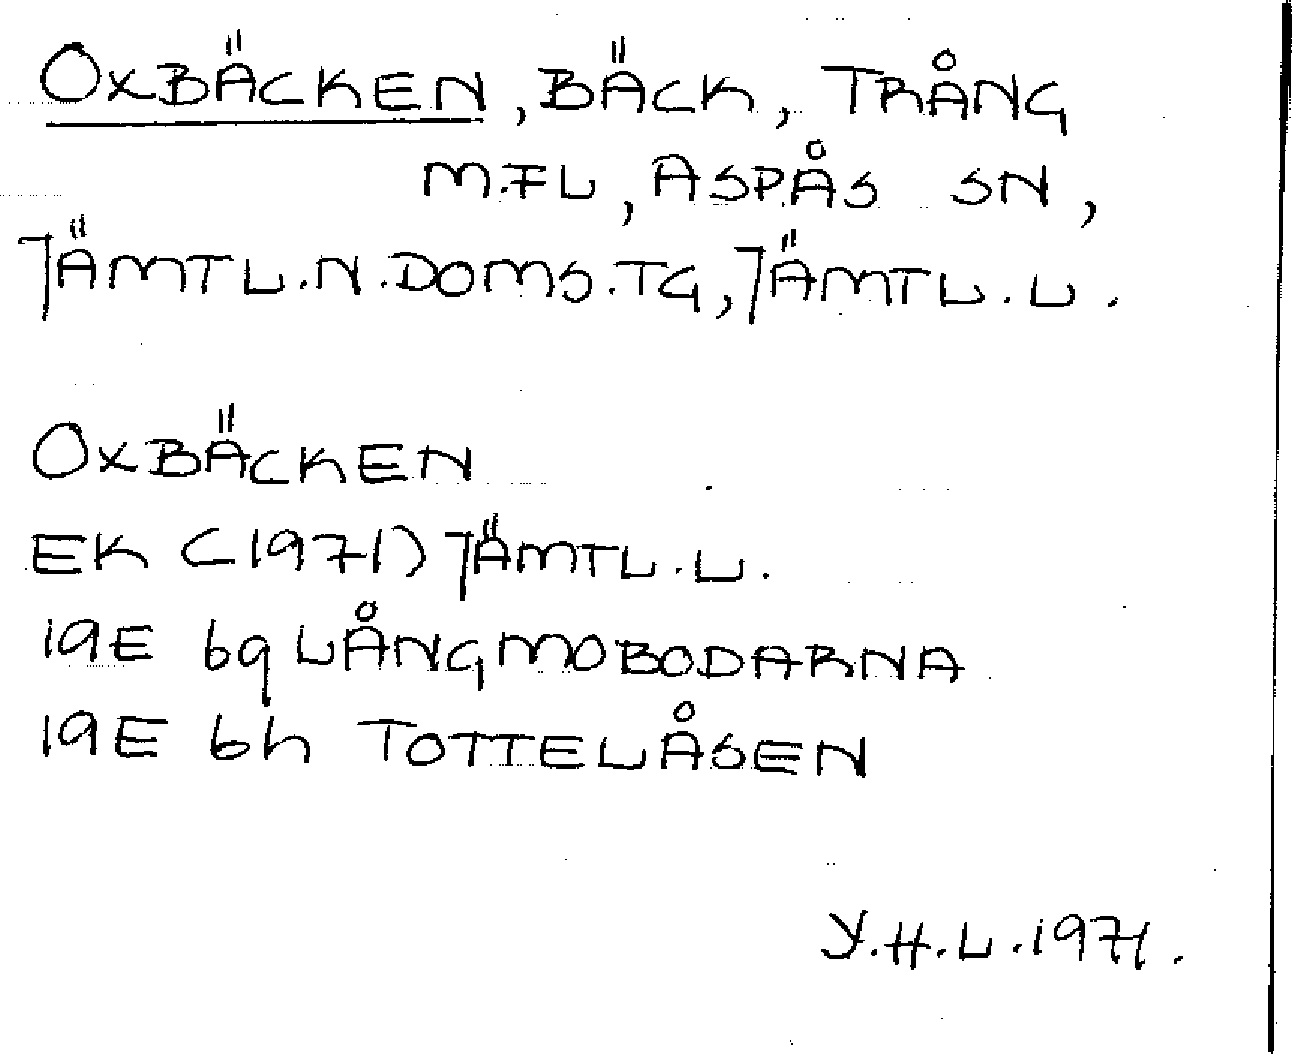 OXBÄCKEN, BÄCK, TRÅNG
M.FL, ASPÅS SN,
JÄMTL.N.DOMS.TG, JÄMTL.L.
OXBÄCKEN
EK (1971) JÄMTL.L.
19E 6g LÅNGMOBODARNA
19E 6h TOTTELÅSEN
Y.H.L.1971.